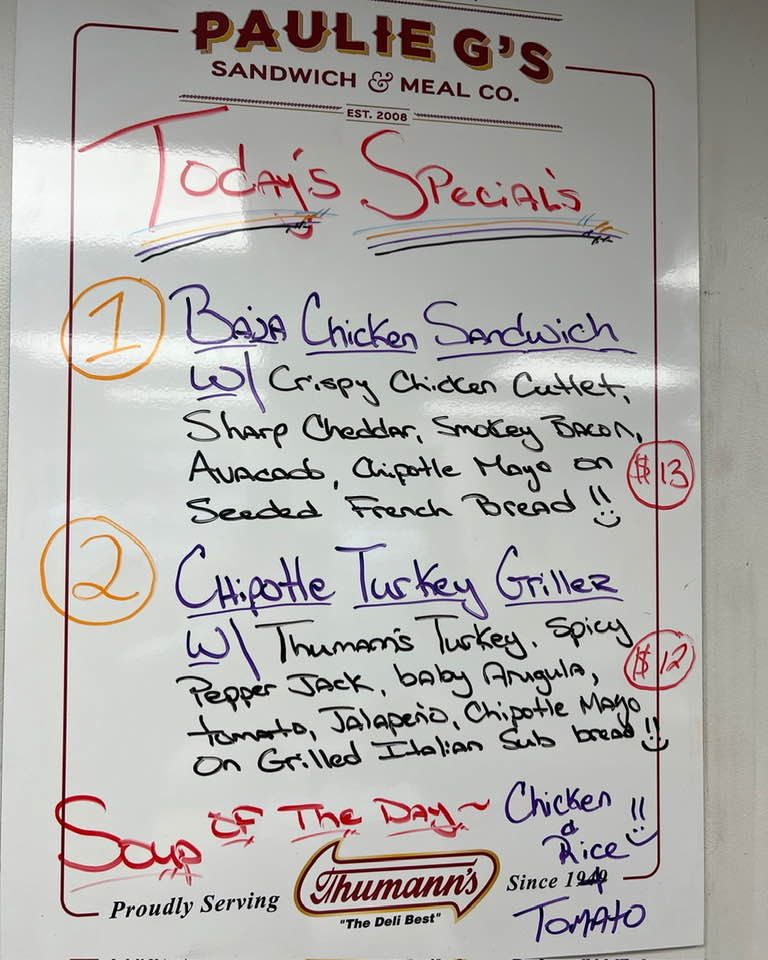 PAULIE G'S
SANDWICH & MEAL CO.
EST. 2008
Today's Special's
1 Baja Chicken Sandwich
W/ Crispy Chicken Cutlet,
Sharp Cheddar, Smokey Bacon,
Avacado, Chipotle Mayo on
$13
Seeded French Bread !!
2 Chipotle Turkey Griller
W/ Thumann's Turkey, Spicy
$12
Pepper Jack, baby Arugula,
tomato, Jalapeño, Chipotle Mayo
on Grilled Italian Sub bread!!
Soup of The Day ~ Chicken !!
&
Rice
Proudly Serving Thumann's Since 1949
"The Deli Best"
&
Tomato